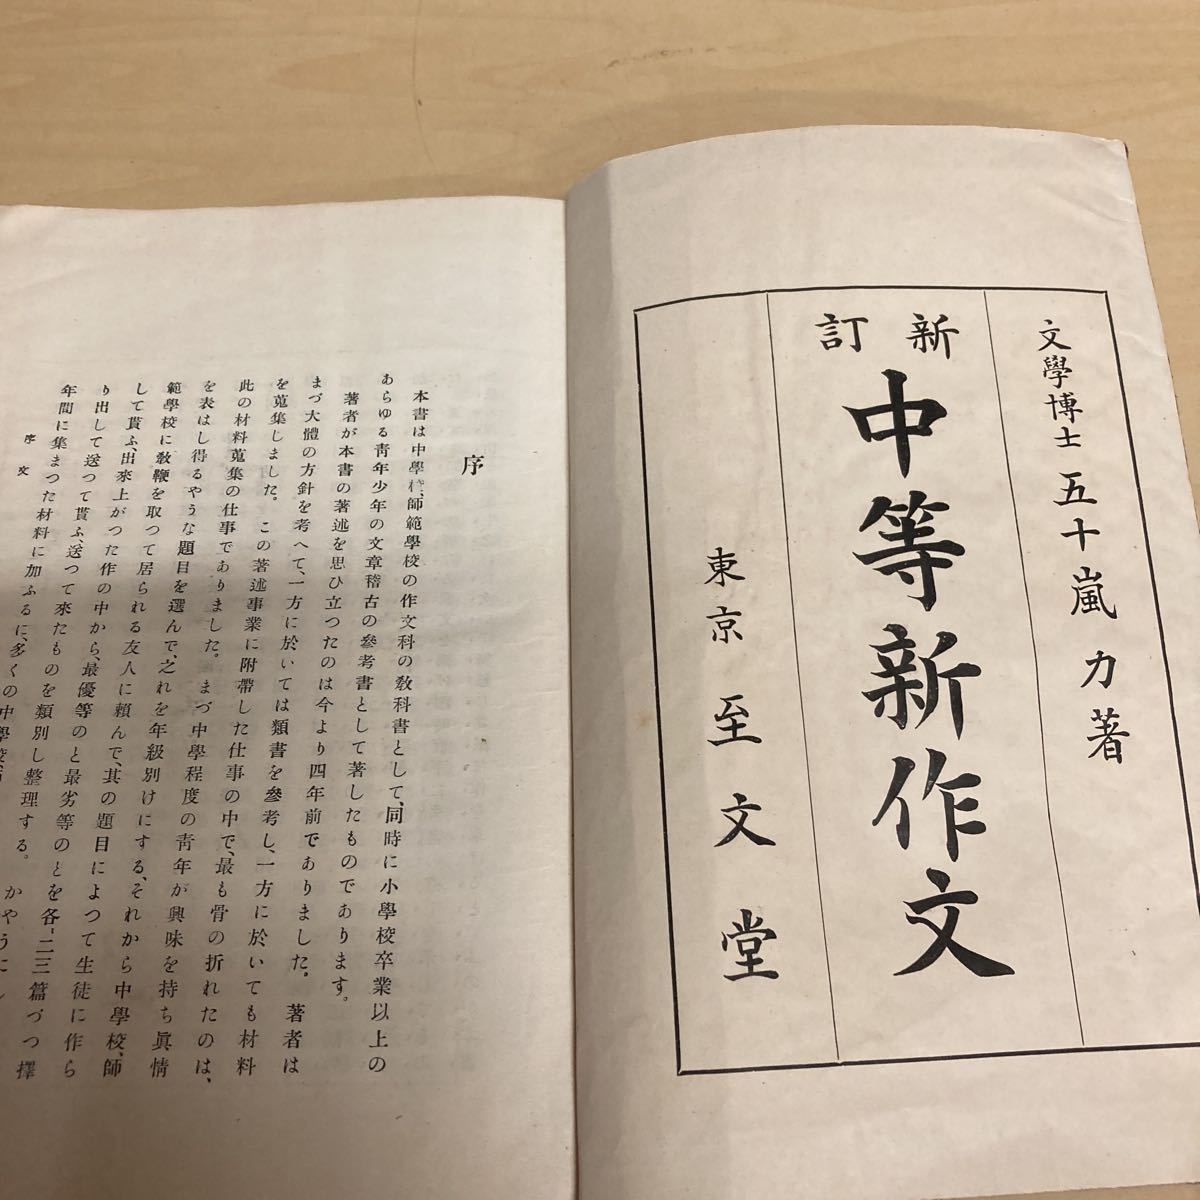 文學博士 五十嵐力著
新訂
中等新作文
東京 至文堂
序
本書は中學校、師範學校の作文科の敎科書として、同時に小學校卒業以上の
あらゆる靑年少年の文章稽古の參考書として著したものであります。
著者が本書の著述を思ひ立つたのは今より四年前でありました。著者は
まづ大體の方針を考へて、一方に於いては類書を參考し、一方に於いても材料
を蒐集しました。この著述事業に附帶した仕事の中で、最も骨の折れたのは、
此の材料蒐集の仕事でありました。まづ中學程度の靑年が興味を持ち眞情
を表はし得るやうな題目を選んで、之れを年級別けにする、それから中學校、師
範學校に敎鞭を取つて居られる友人に賴んで、其の題目によつて生徒に作ら
して貰ふ、出來上がつた作の中から、最優等のと最劣等のとを各〻二三篇づつ擇
り出して送つて貰ふ、送つて來たものを類別し整理する。かやうにし
年間に集まつた材料に加ふるに、多くの中學校
序文